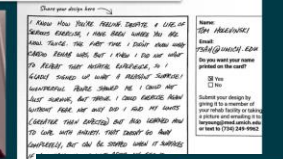 Share your design here
I KNOW HOW YOU'RE FEELING. DESPITE A LIFE OF
SERIOUS EXERCISE, I HAVE BEEN WHERE YOU ARE
NOW. TWICE. THE FIRST TIME I DIDN'T KNOW WHAT
CARDIO REHAB WAS, BUT I KNEW I DID NOT WANT
TO REPEAT THAT HOSPITAL EXPERIENCE, SO I
GLADLY SIGNED UP. WHAT A PLEASANT SURPRISE!
WONDERFUL PEOPLE SHOWED ME I COULD NOT
JUST SURVIVE, BUT THRIVE. I COULD EXERCISE AGAIN
WITHOUT FEAR. NOT ONLY DID I MEET MY LIMITS
(GREATER THAN EXPECTED) BUT ALSO LEARNED HOW
TO COPE WITH ANXIETY. THAT DOESN'T GO AWAY
COMPLETELY, BUT CAN BE STOPPED WHEN IT SURFACES
Name:
TOM
Email:
@UMICH.EDU
Do you want your name
printed on the card?
Yes
No
Submit your design by
giving it to a member of
your rehab facility or taking
a picture and emailing it to
beyoung@med.umich.edu
or text to (734) 249-9962